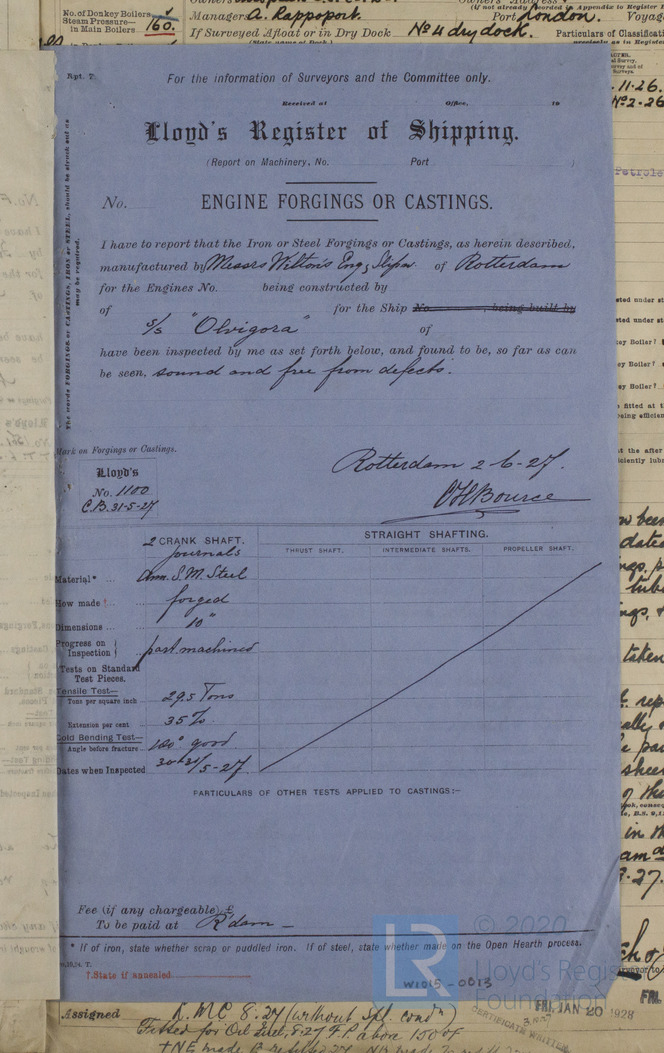 No. of Donkey Boilers
Steam Pressure—
in Main Boilers 160.
Manager A. Rappoport.
Port London.
(if not already recorded in Appendix to Register
If Surveyed Afloat or in Dry Dock No 4 dry dock.
(State name of Dock.)
Particulars of Classificati
Rpt. 7.
For the information of Surveyors and the Committee only.
Received at Office, 19
Lloyd's Register of Shipping.
(Report on Machinery, No. Port )
No. ENGINE FORGINGS OR CASTINGS.
The words FORGINGS or CASTINGS, IRON or STEEL, should be struck out as
may be required.
I have to report that the Iron or Steel Forgings or Castings, as herein described,
manufactured by Messrs Wilton's Eng. Slipw. of Rotterdam
for the Engines No. being constructed by
of for the Ship No. being built by
s/s "Olvigora" of
have been inspected by me as set forth below, and found to be, so far as can
be seen, sound and free from defects.
Mark on Forgings or Castings.
Lloyd's
No. 1100
C.B. 31-5-27
Rotterdam 2-6-27.
2 CRANK SHAFT.
journals
STRAIGHT SHAFTING.
THRUST SHAFT. INTERMEDIATE SHAFTS. PROPELLER SHAFT.
Material* ... Ann. S.M. Steel
How made † ... forged
Dimensions ... 10"
Progress on
Inspection part machined
Tests on Standard
Test Pieces.
Tensile Test—
Tons per square inch 29.5 Tons
Extension per cent 35%
Cold Bending Test—
Angle before fracture 180° good
Dates when Inspected 30 & 31/5-27.
PARTICULARS OF OTHER TESTS APPLIED TO CASTINGS:—
Fee (if any chargeable) £
To be paid at R'dam —
* If of iron, state whether scrap or puddled iron. If of steel, state whether made on the Open Hearth process.
† State if annealed.
© 2020
LR
Lloyd's Regist
Foundation
W1015-0013
FRI. JAN 20 1928
CERTIFICATE WRITTEN
Assigned
Fitted for Oil Fuel, 8.27 F.P. above 150°F